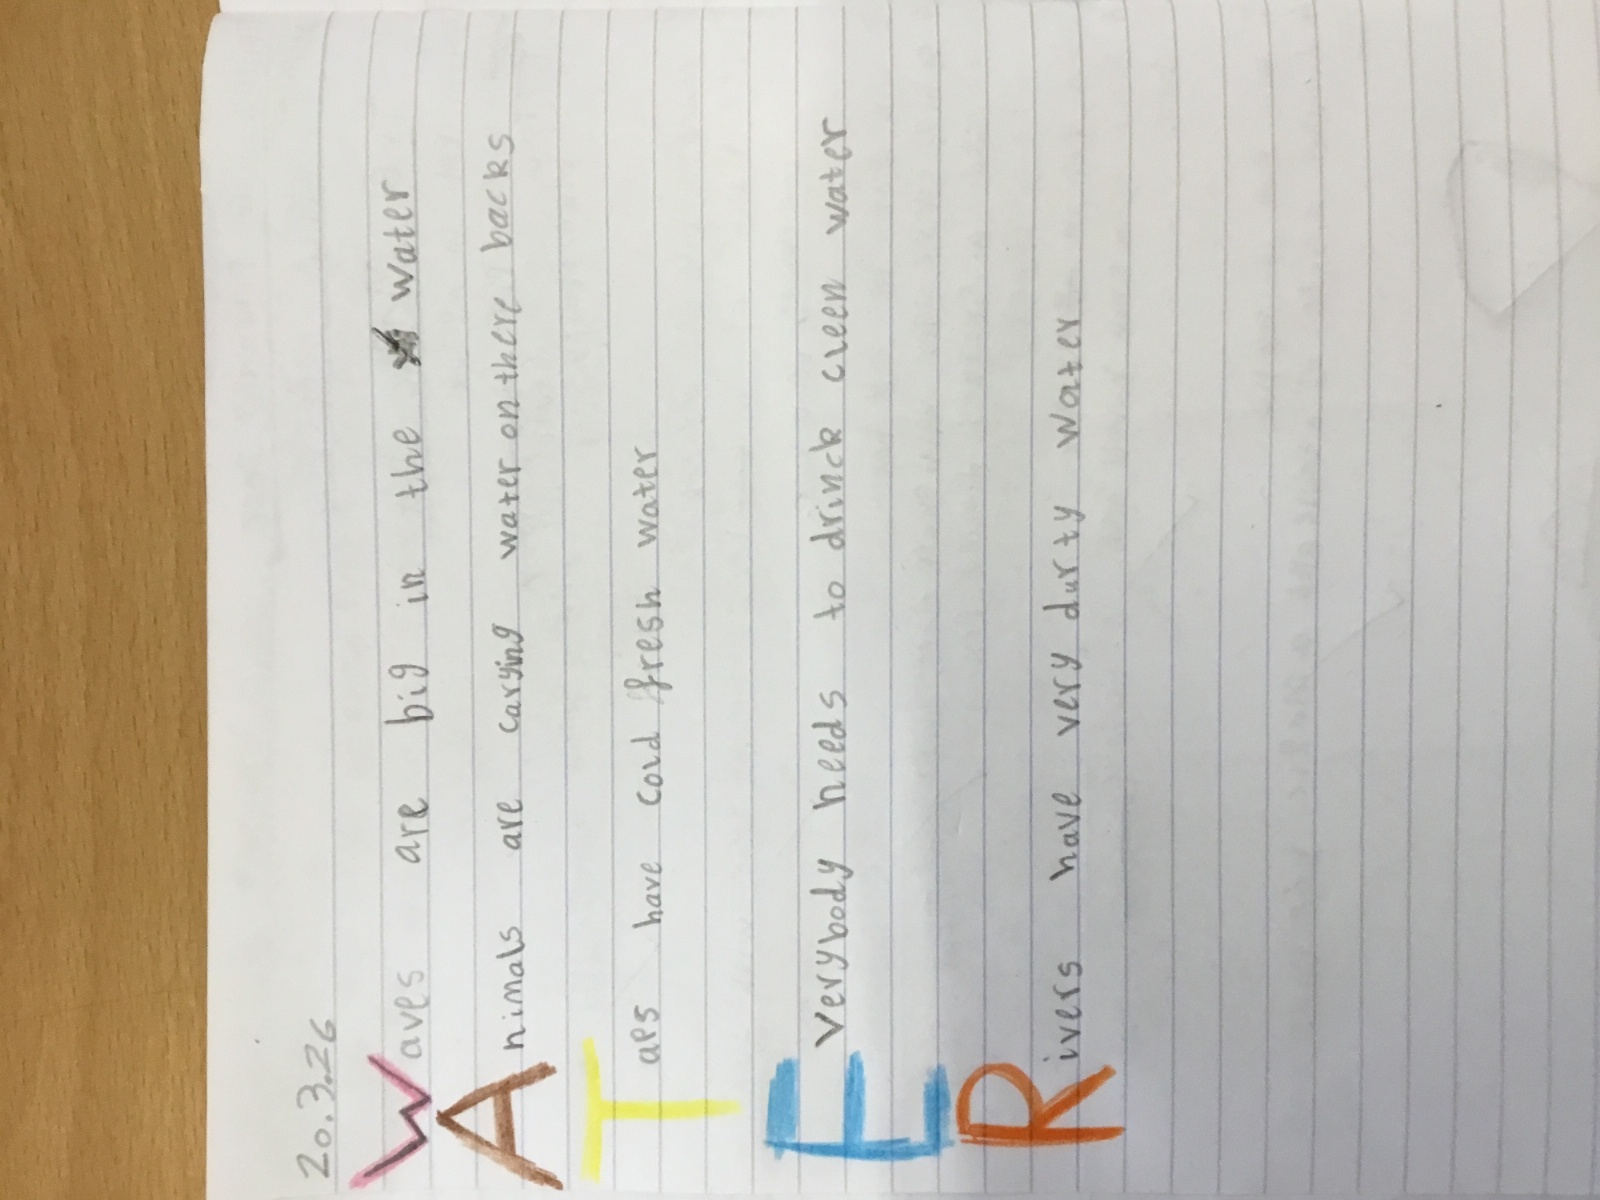 20.3.26
Waves are big in the water
Animals are carying water on there backs
Taps have cold fresh water
Everybody needs to drinck cleen water
Rivers have very durty water